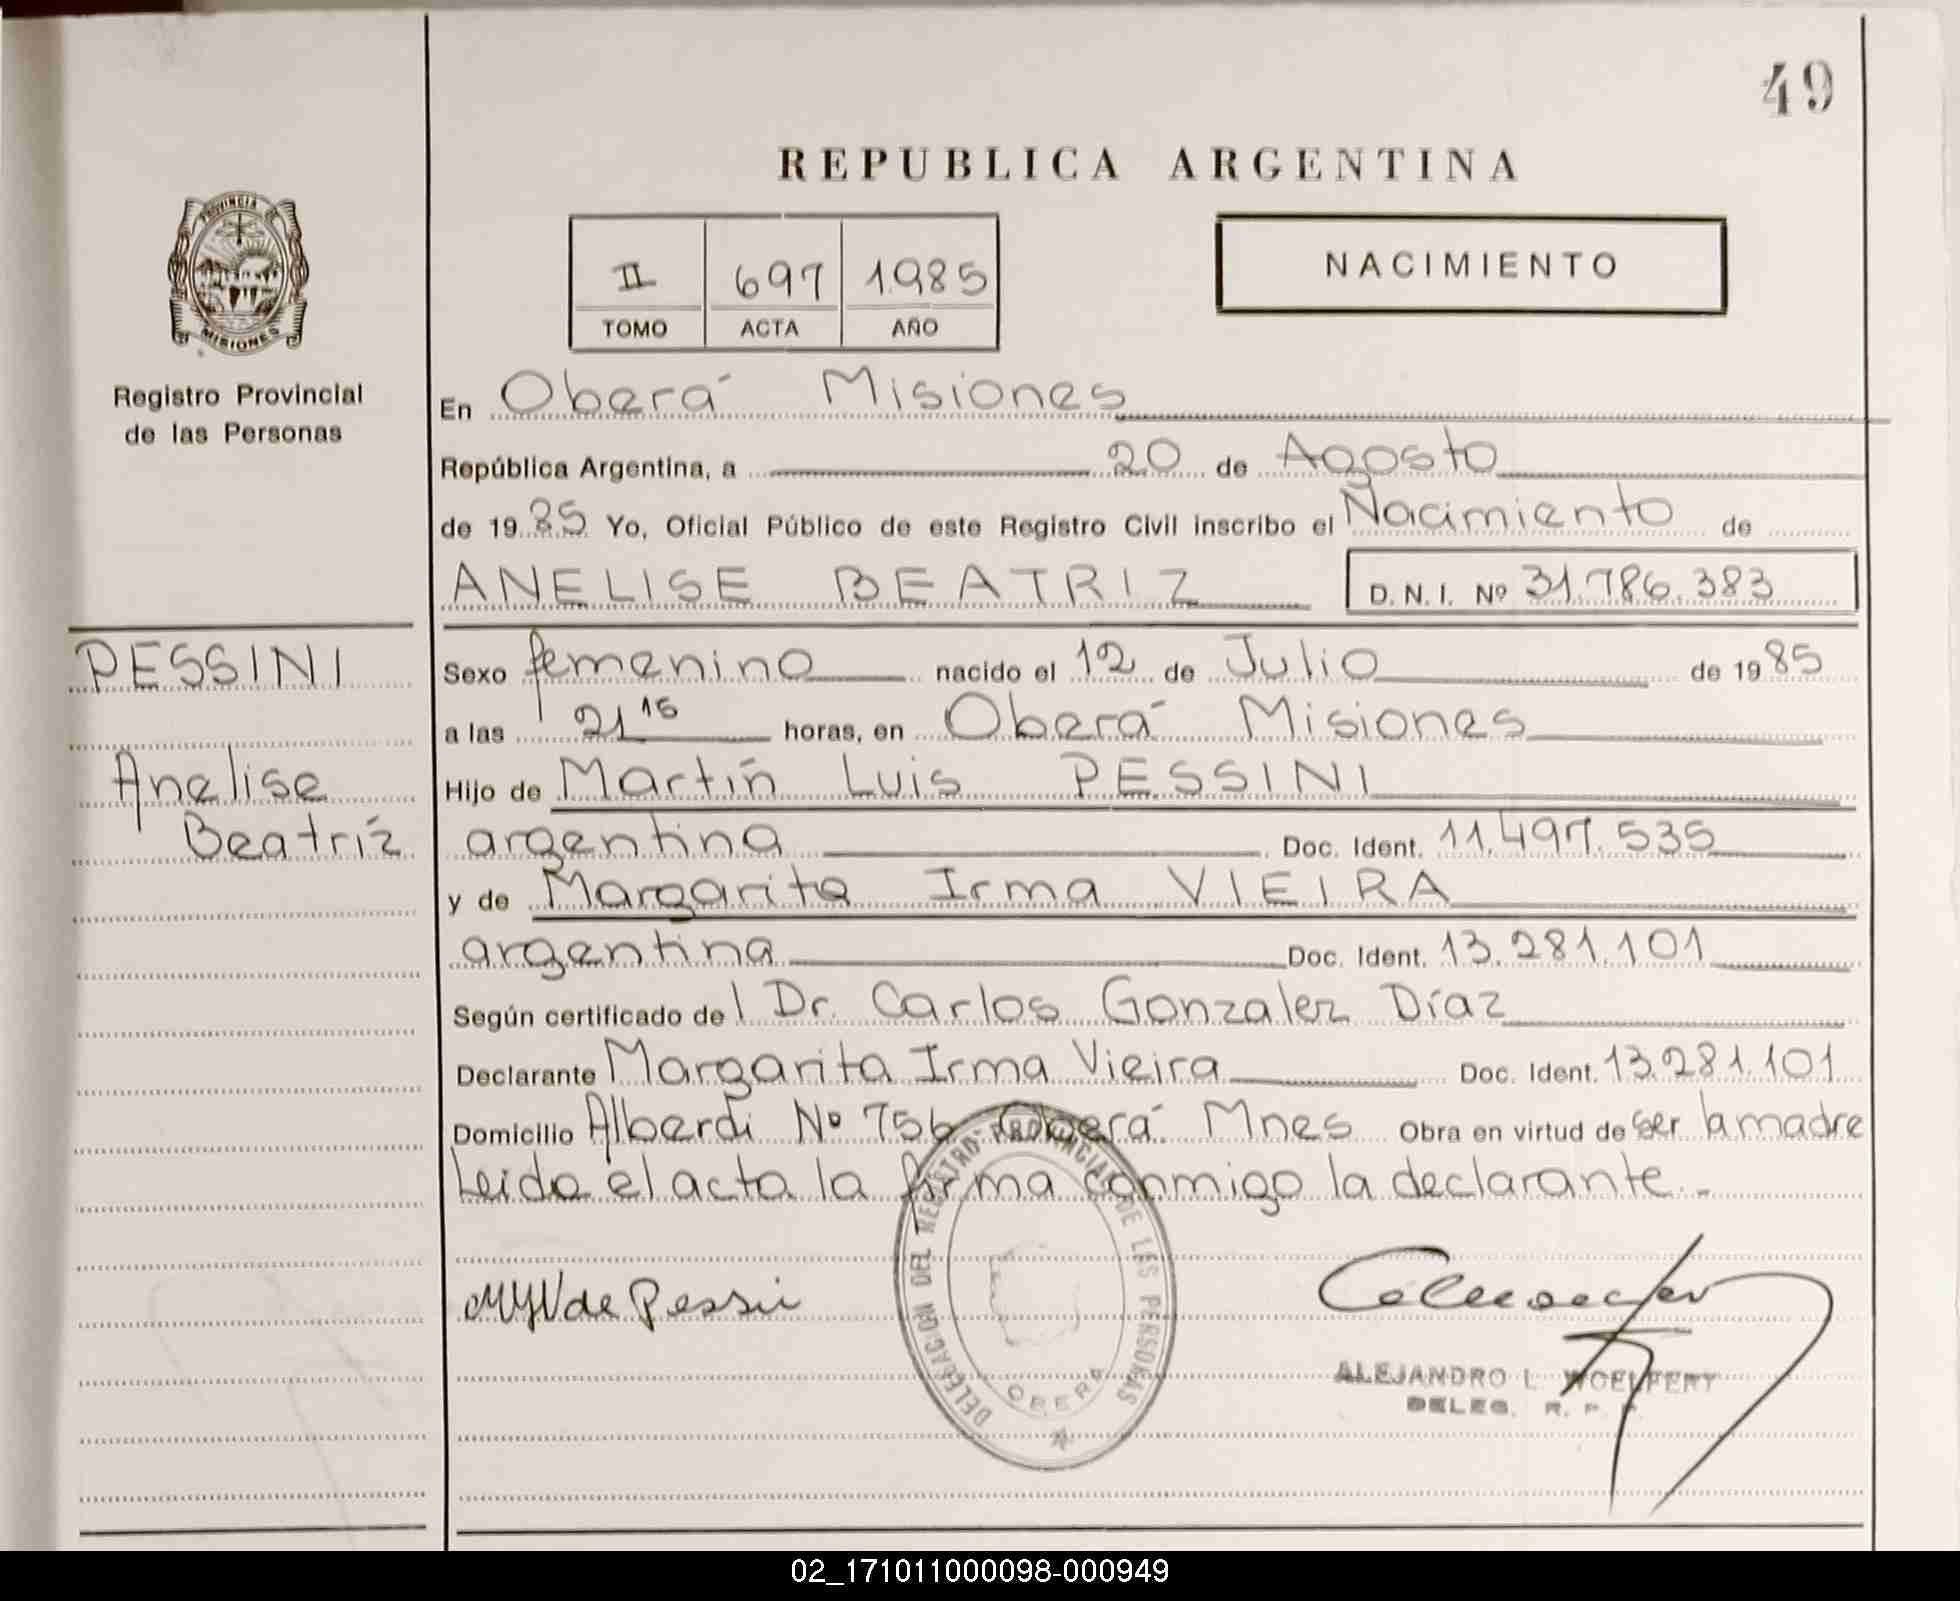 49
REPUBLICA ARGENTINA
PROVINCIA DE
MISIONES
II 697 1985
TOMO ACTA AÑO
NACIMIENTO
Registro Provincial
de las Personas
En Oberá Misiones
República Argentina, a 20 de Agosto
de 1985 Yo, Oficial Público de este Registro Civil inscribo el Nacimiento de
ANELISE BEATRIZ D.N.I. Nº 31.786.383
PESSINI
Anelise
Beatriz
Sexo femenino nacido el 12 de Julio de 1985
a las 21 15 horas, en Oberá Misiones
Hijo de Martín Luis PESSINI
argentina Doc. Ident. 11.497.535
y de Margarita Irma VIEIRA
argentina Doc. Ident. 13.281.101
Según certificado del Dr. Carlos Gonzalez Díaz
Declarante Margarita Irma Vieira Doc. Ident. 13.281.101
Domicilio Alberdi Nº 756 Oberá Mnes Obra en virtud de ser la madre
Leida el acta la firma conmigo la declarante.-
DELEGACION DEL REGISTRO PROVINCIAL DE LES PERSONAS
OBERA
de Pessini
ALEJANDRO L. WOELFERT
DELEG. R. P. P.
02_171011000098-000949